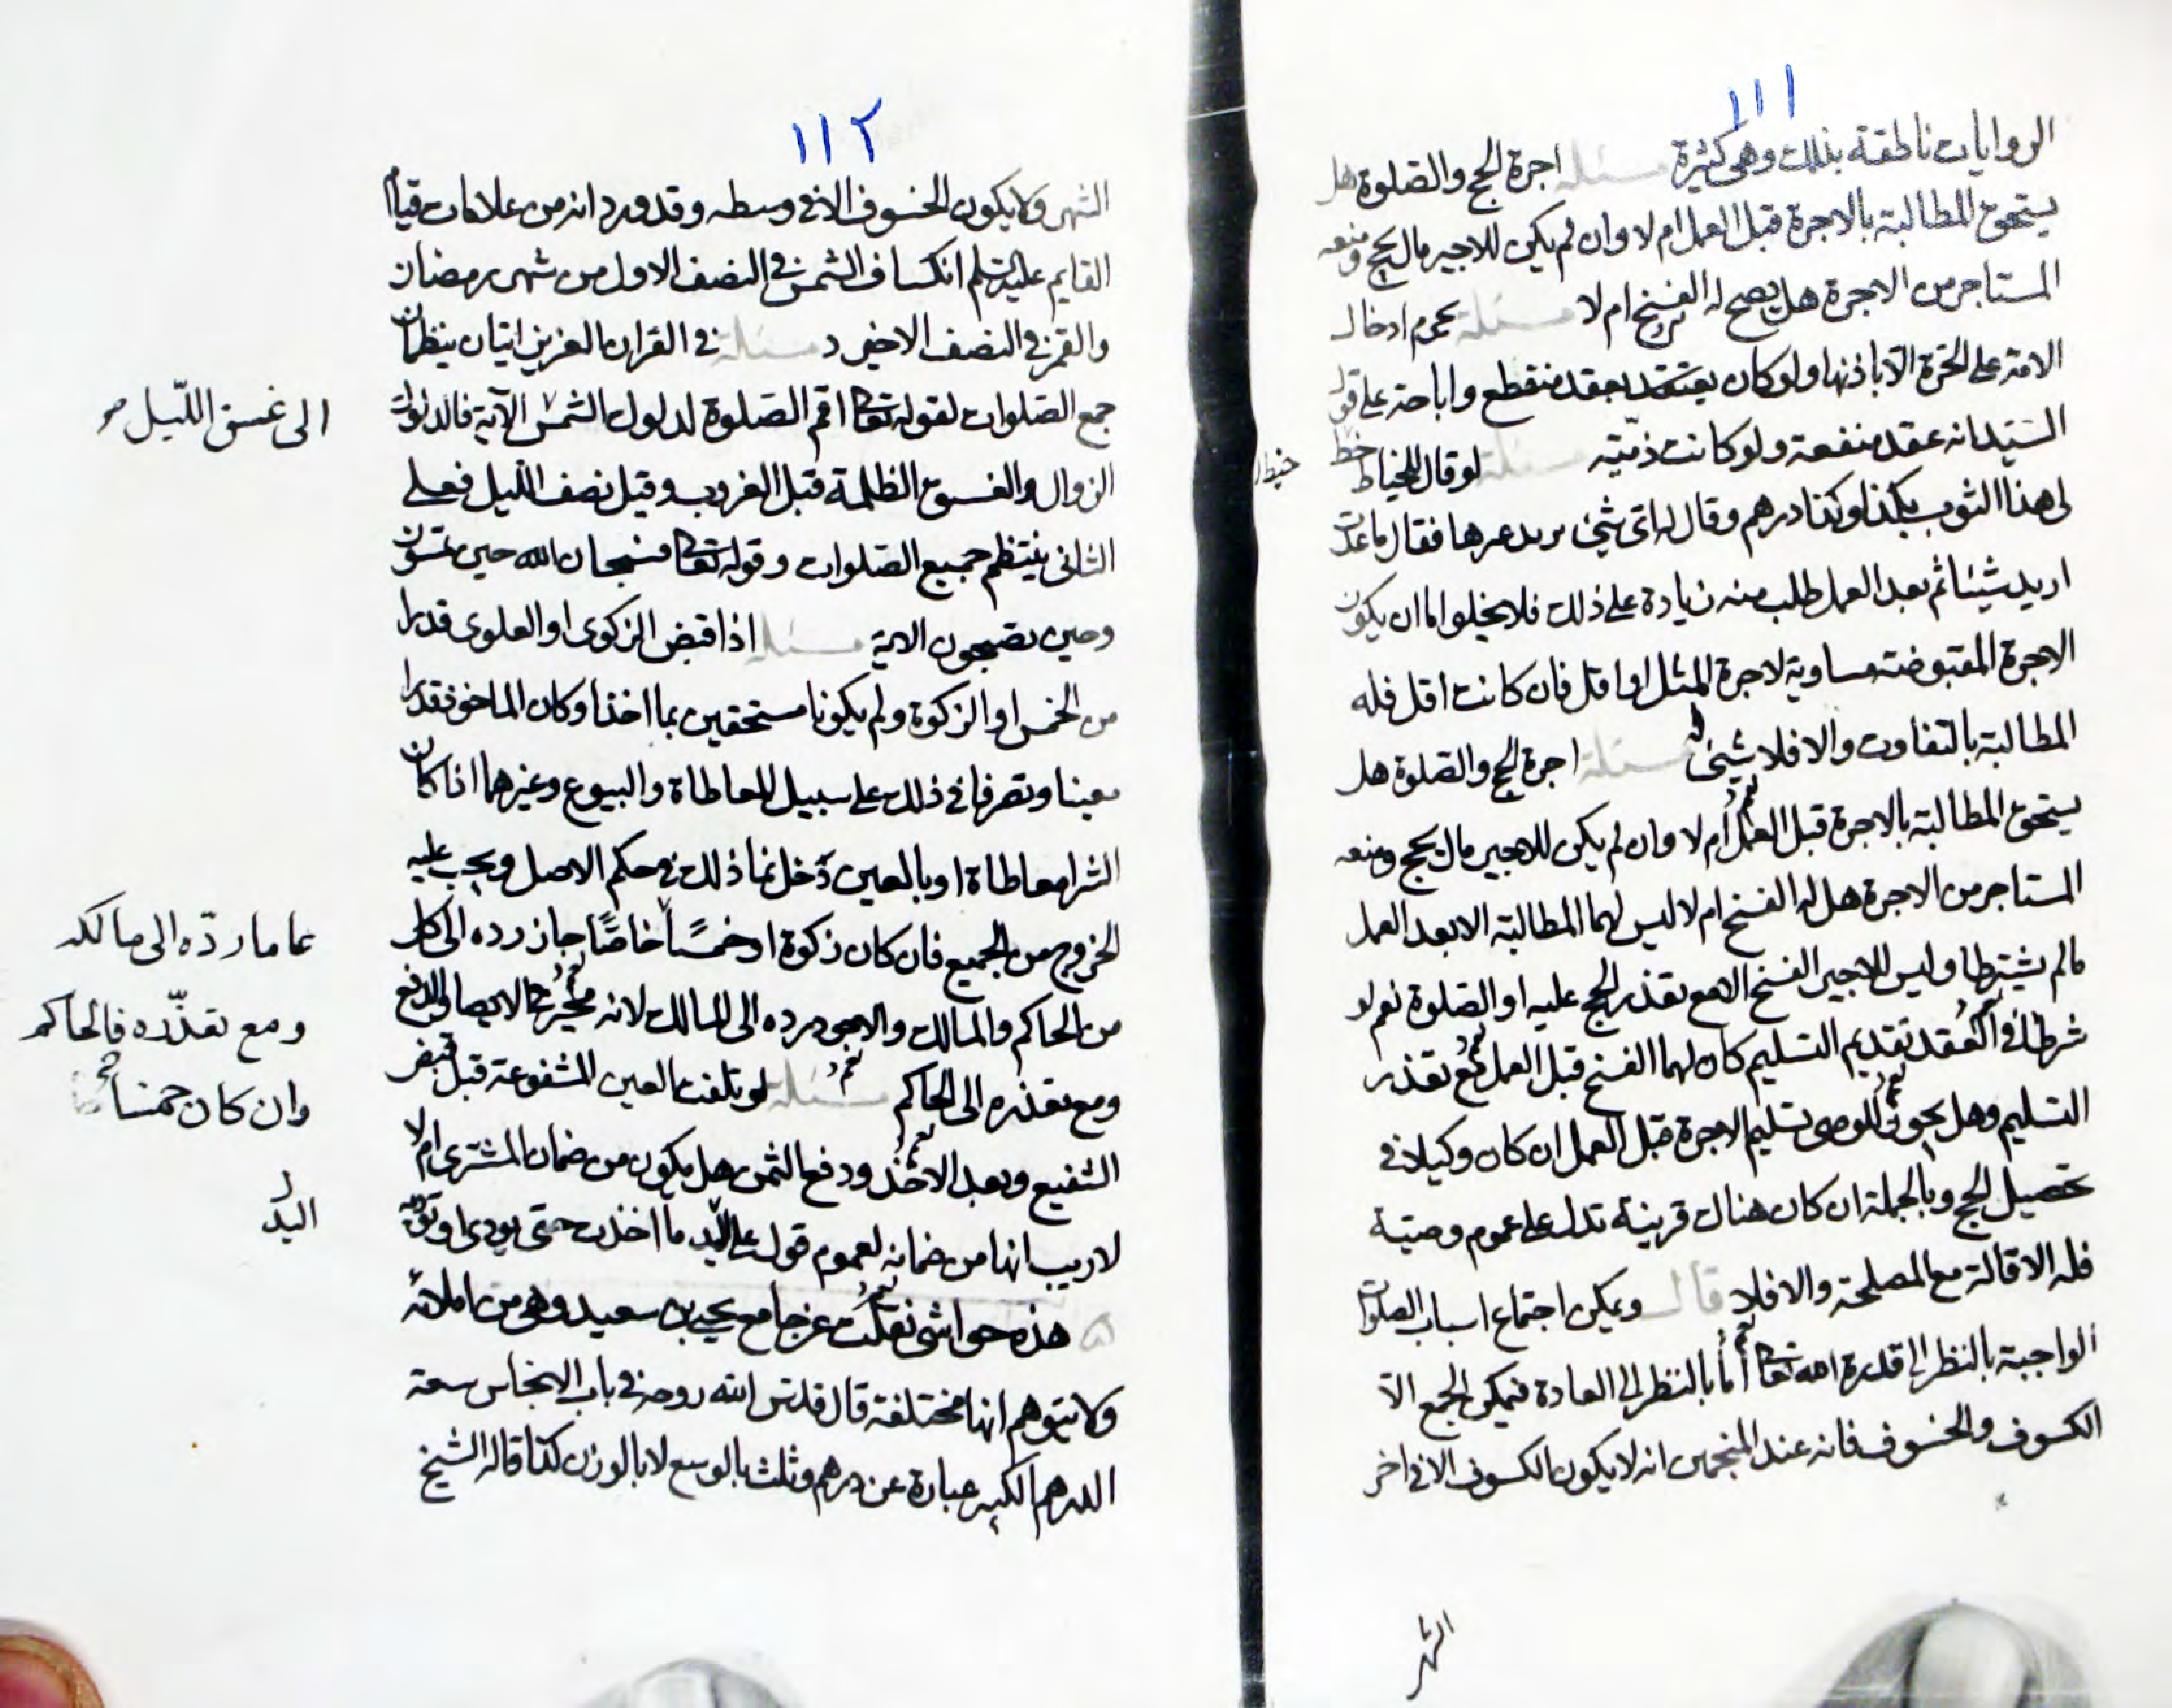 ١١١
الروايات ناطقة بذلك وهي كثيرة مسئلة اجرة الحج والصلوة هل
يستحق المطالبة بالاجرة قبل العمل ام لا وان لم يكن للاجير مال يحج ومنعه
المستاجر من الاجرة هل يصح له الفسخ ام لا مسئلة يحرم ادخال
الامة على الحرة الا باذنها ولو كان بعقد منقطع واباحة على قول
السيد انه عقد منفعة ولو كانت ذمية مسئلة لو قال للخياط خط
لى هذا الثوب بكذا وكذا درهم وقال له اى شيئ فقال ما عدت
اريد شيئا ثم بعد العمل طلب منه زيادة على ذلك فلا يخلوا اما ان يكون
الاجرة المقبوضة مساوية لاجرة المثل او اقل فان كانت اقل فله
المطالبة بالتفاوت والا فلا شيئ له مسئلة اجرة الحج والصلوة هل
يستحق المطالبة بالاجرة قبل العمل ام لا وان لم يكن للاجير مال يحج ومنعه
المستاجر من الاجرة هل له الفسخ ام لا ليس لهما المطالبة الا بعد العمل
ما لم يشترطا وليس للاجير الفسخ الا مع تعذر الحج عليه او الصلوة نعم لو
شرطا في العقد تقديم التسليم كان لهما الفسخ قبل العمل مع تعذر
التسليم وهل يجوز للوصى تسليم الاجرة قبل العمل ان كان وكيلا في
تحصيل الحج وبالجملة ان كان هناك قرينة تدل على عموم وصيته
فله الاقالة مع المصلحة والا فلا قال ويمكن اجتماع اسباب الصلوات
الواجبة بالنظر الى قدرة الله تعالى اما بالنظر الى العادة فيمكن الجمع الا
الكسوف والخسوف فانه عند المنجمين انه لا يكون الكسوف الا في اخر
الشهر
١١٢
الشهر ولا يكون الخسوف الا في وسطه وقد ورد انه من علامات قيام
القايم عليه السلم انكساف الشمس في النصف الاول من شهر رمضان
والقمر في النصف الاخير د مسئلة في القران العزيز ايتان ينظمان
جمع الصلوات لقوله تعالى اقم الصلوة لدلوك الشمس الآية فالدلوك
الى غسق الليل
الزوال والغسق الظلمة قبل الغروب وقيل نصف الليل فعلى
الثاني ينتظم جميع الصلوات وقوله تعالى فسبحان الله حين تمسون
وحين تصبحون الاية مسئلة اذا قبض الزكوى او العلوى قدرا
من الخمس او الزكوة ولم يكونا مستحقين بما اخذا وكان الماخوذ قدرا
معينا وتصرفا في ذلك على سبيل المعاطاة والبيوع وغيرهما اذا كان
الشرا معاطاة او بالعين دخل نما ذلك في حكم الاصل ويجب عليه
الخروج من الجميع فان كان زكوة او خمسًا خاصًا جاز رده الى كل
من الحاكم والمالك والاجود رده الى المالك لانه مخير
ومع تعذره الى الحاكم مسئلة لو تلفت العين المشفوعة قبل قبض
الشفيع وبعد الاخذ ودفع الثمن هل يكون من ضمان المشترى ام لا
لا ريب انها من ضمانه لعموم قوله على اليد ما اخذت حتى يودى
هذه حواشى نقلت عن جامع يحيى بن سعيد وهي من املائه
ولا يتوهم انها مختلفة قال قدس الله روحه في باب الانجاس سعة
الدرهم الكبير عبارة عن درهم وثلث بالوسع لا بالوزن كذا قاله الشيخ
رده الى مالكه
ومع تعذره فالحاكم
وان كان خمسا
اليد